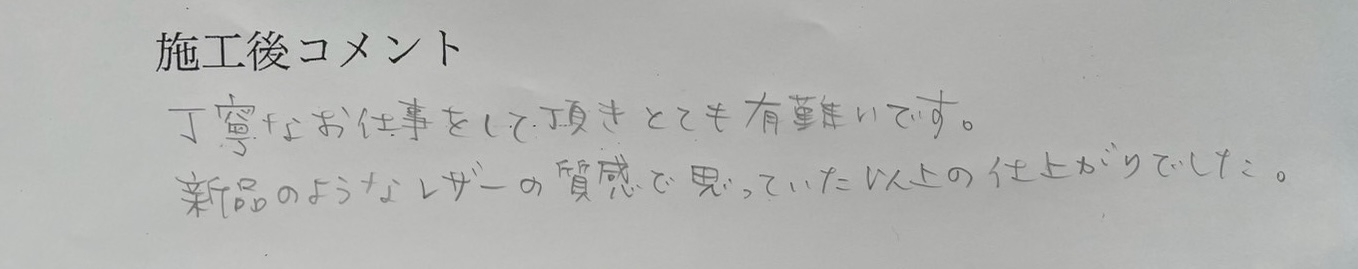 施工後コメント
丁寧なお仕事をして頂きとても有難いです。
新品のようなレザーの質感で思っていた以上の仕上がりでした。